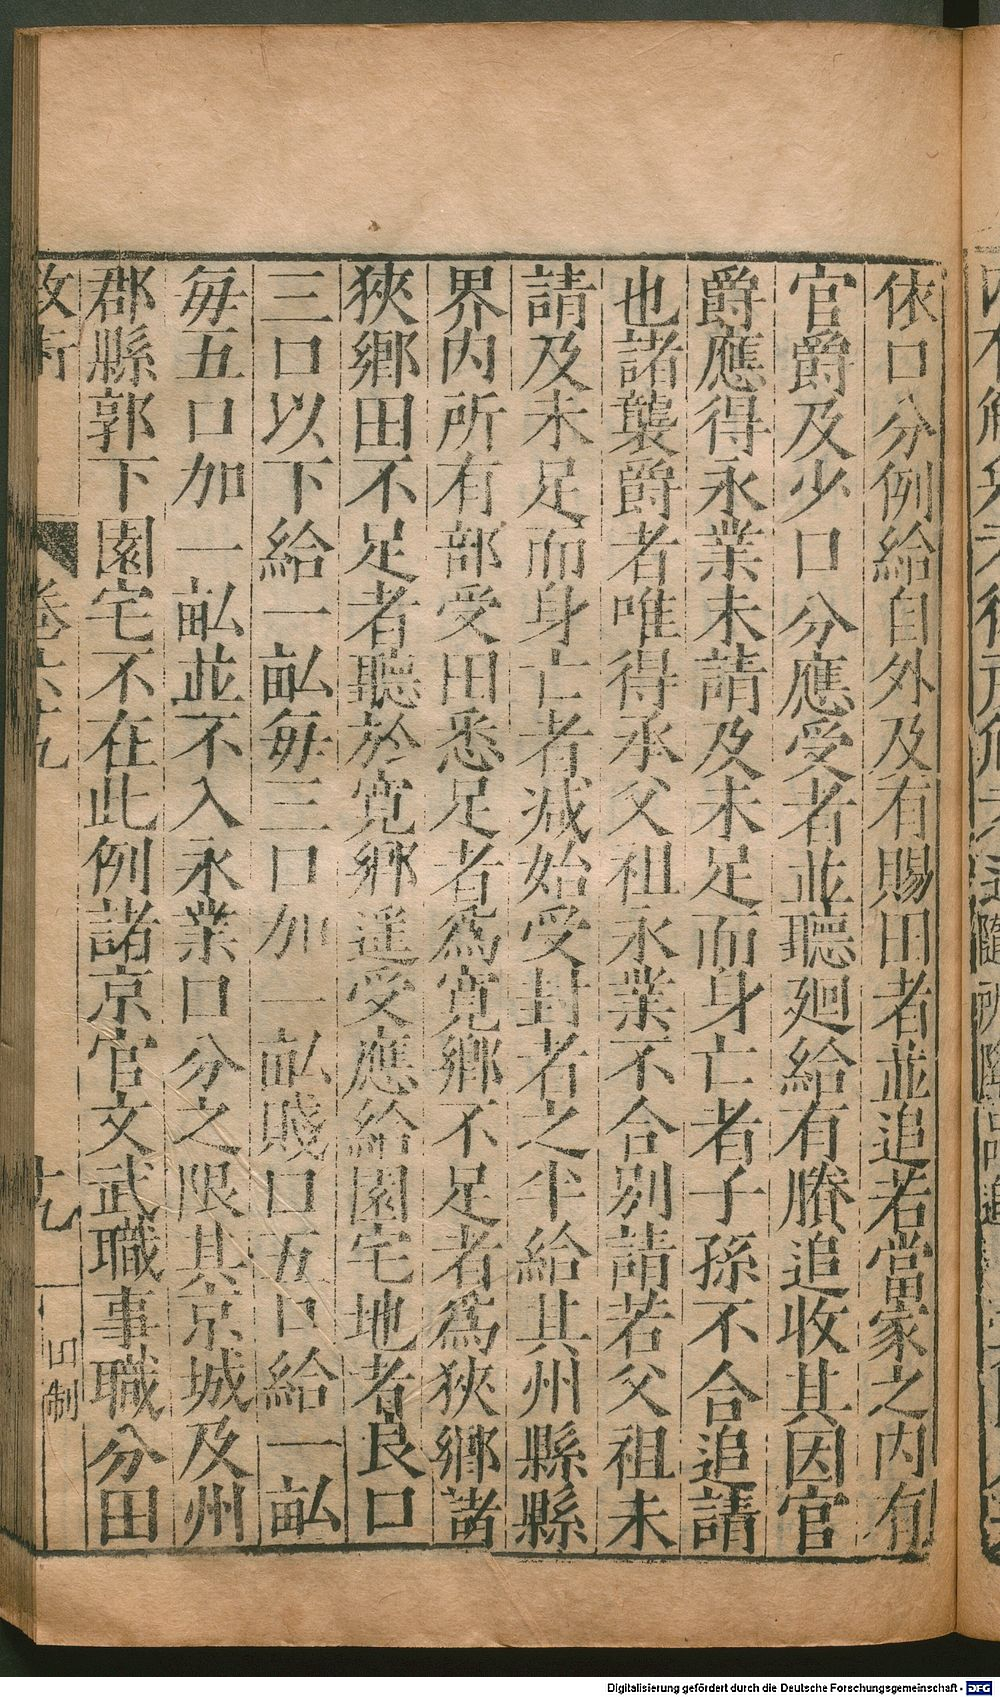 依口分例給自外及有賜田者並追若當家之内有
官爵及少口分應受者並聽廻給有賸追收其因官
爵應得永業未請及未足而身亡者子孫不合追請
也諸襲爵者唯得承父祖永業不合別請若父祖未
請及未足而身亡者減始受封者之半給其州縣縣
界内所有部受田悉足者爲寬鄉不足者爲狹鄉諸
狹鄉田不足者聽於寬鄉遥受應給園宅地者良口
三口以下給一畝每三口加一畝賤口五口給一畝
每五口加一畝並不入永業口分之限其京城及州
郡縣郭下園宅不在此例諸京官文武職事職分田
卷六十九
十九
制
Digitalisierung gefördert durch die Deutsche Forschungsgemeinschaft - DFG